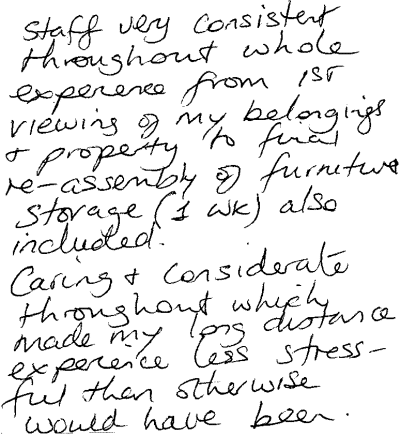 Staff very consistent
throughout whole
experence from 1ST
viewing of my belongings
+ property to final
re-assembly of furniture
Storage (1 wk) also
included.
Caring + considerate
throughout which
made my long distance
experence less stress-
ful than otherwise
would have been.